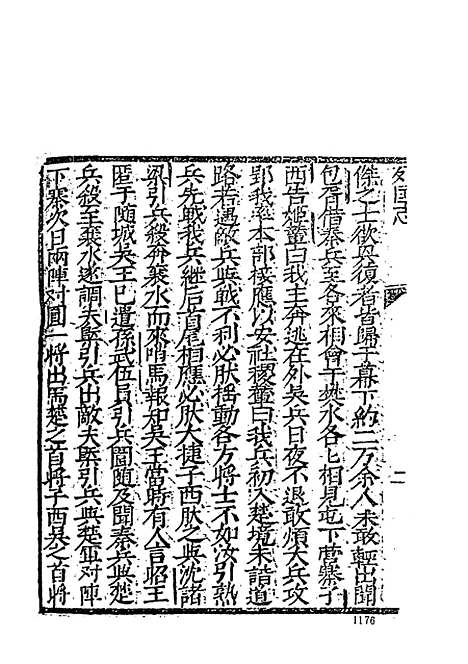 列国六
二
傑之士欲兴復者皆歸于幕下約二万余人未敢輕出聞
包胥借秦兵至各來相會于樊水各各相見屯下营寨子
西告姬輦曰我主奔逃在外吴兵日夜不退敢煩大兵攻
郢我率本部接應以安社稷輦曰我兵初入楚境未諳道
路若遇敵兵與戰不利必肰摇動各方将士不如汝引熟
兵先戰我兵継后首尾相應必肰大捷子西肰之與沈諸
梁引兵殺奔襄水而來哨馬報知吴王當時有人言昭王
匿于随城吴王已遣孫武伍員引兵圍随及聞秦兵與楚
兵殺至襄水遂調夫槩引兵出敵夫槩引兵與楚軍对陣
下寨次日兩陣对圓一将出馬楚之首将子西吴之首将
1176